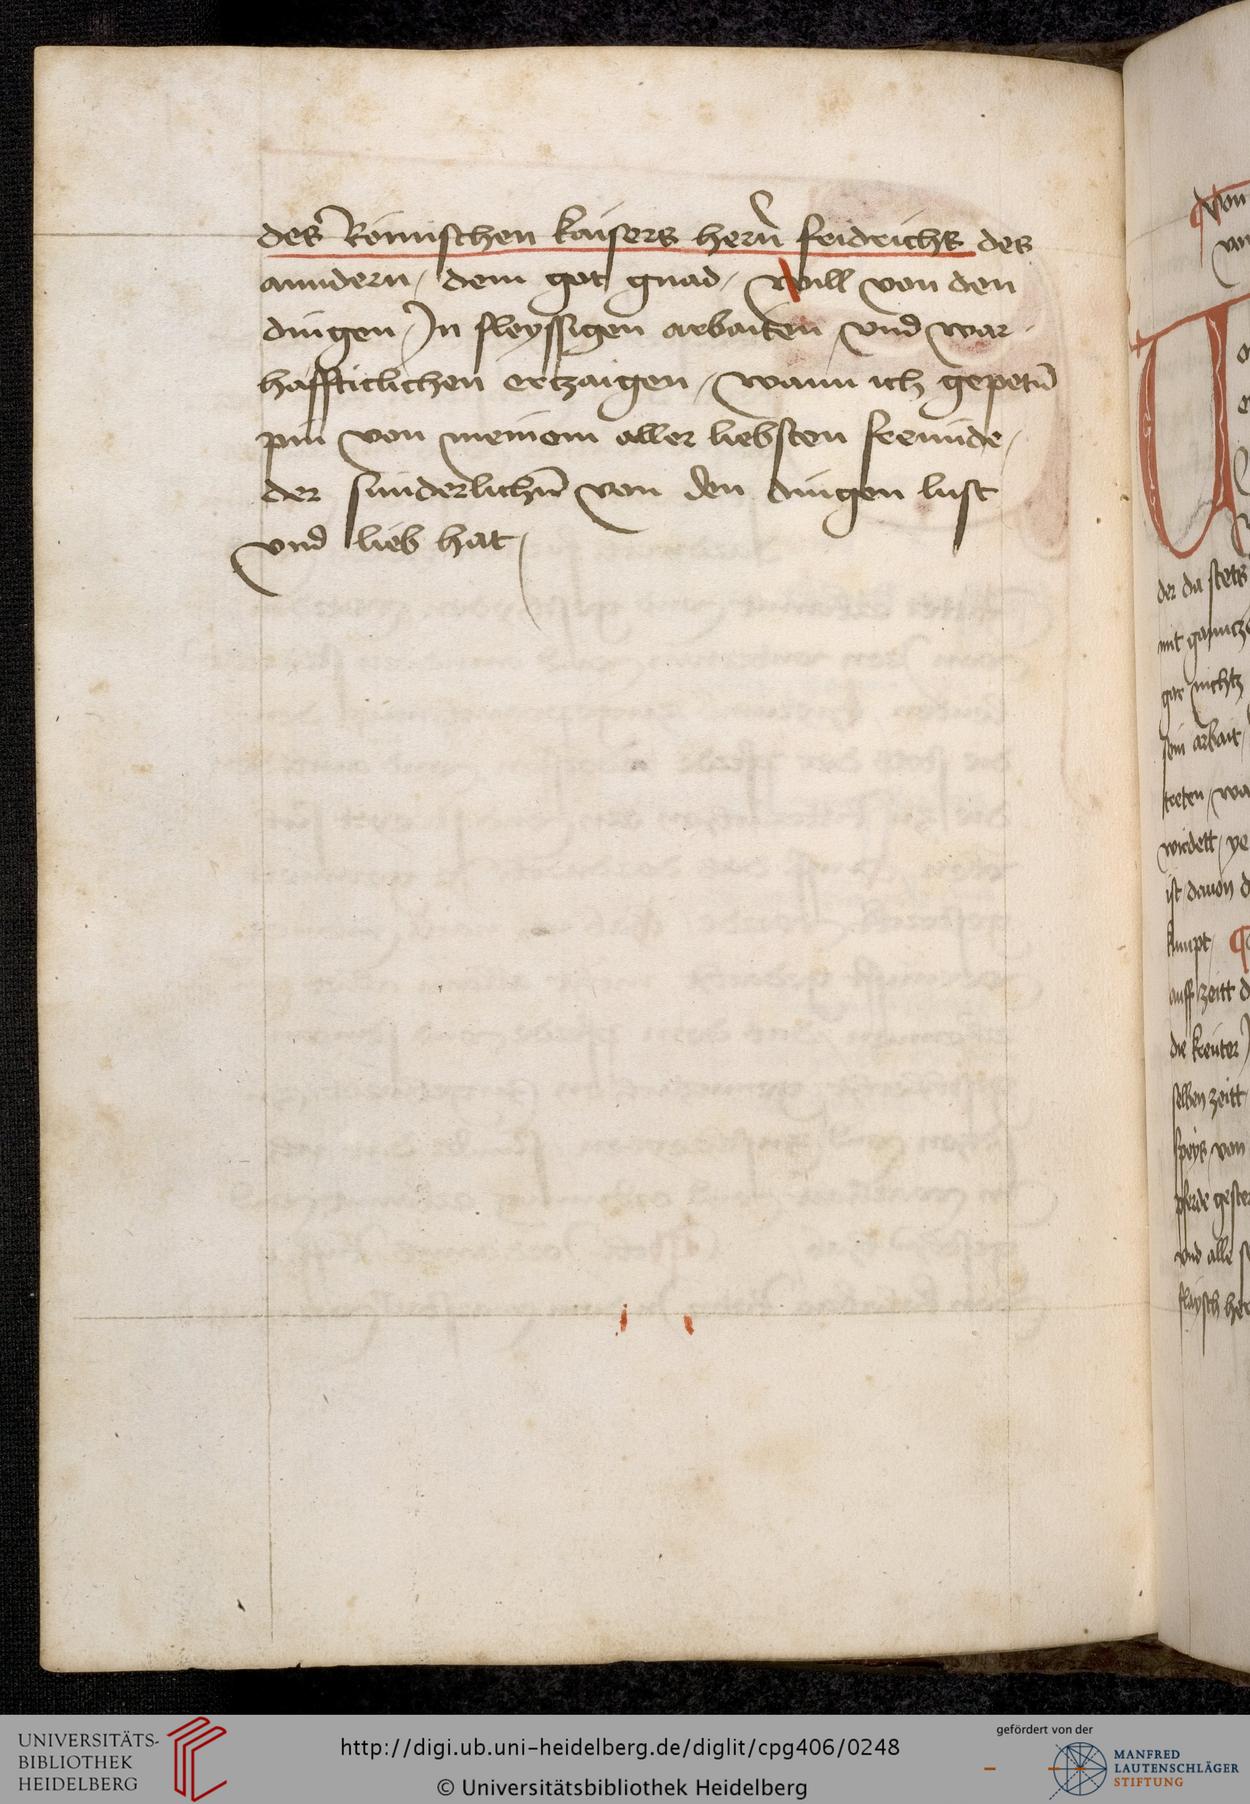 des Römischen kaisers herñ fridrichs des
anndern / dem got gnad / Will von den
dingen / In fleyssigen arbaiten vnd war-
haffticlichen ertzaigen / wann ich gepetñ
pin von meinem aller liebsten freunde /
der sunderlichñ von den dingen lust
vnd lieb hat /
von
der da stets
mit gantze
gar nichtz
sein arbait /
tretten / wa
wirdett / ye
ist dauon d
kumpt /
auff zeitt d
die kreuter
selben zeitt
speys von
pferde geste
vnd alle
flaysch her
UNIVERSITÄTS-
BIBLIOTHEK
HEIDELBERG
http://digi.ub.uni-heidelberg.de/diglit/cpg406/0248
© Universitätsbibliothek Heidelberg
gefördert von der
MANFRED
LAUTENSCHLÄGER
STIFTUNG